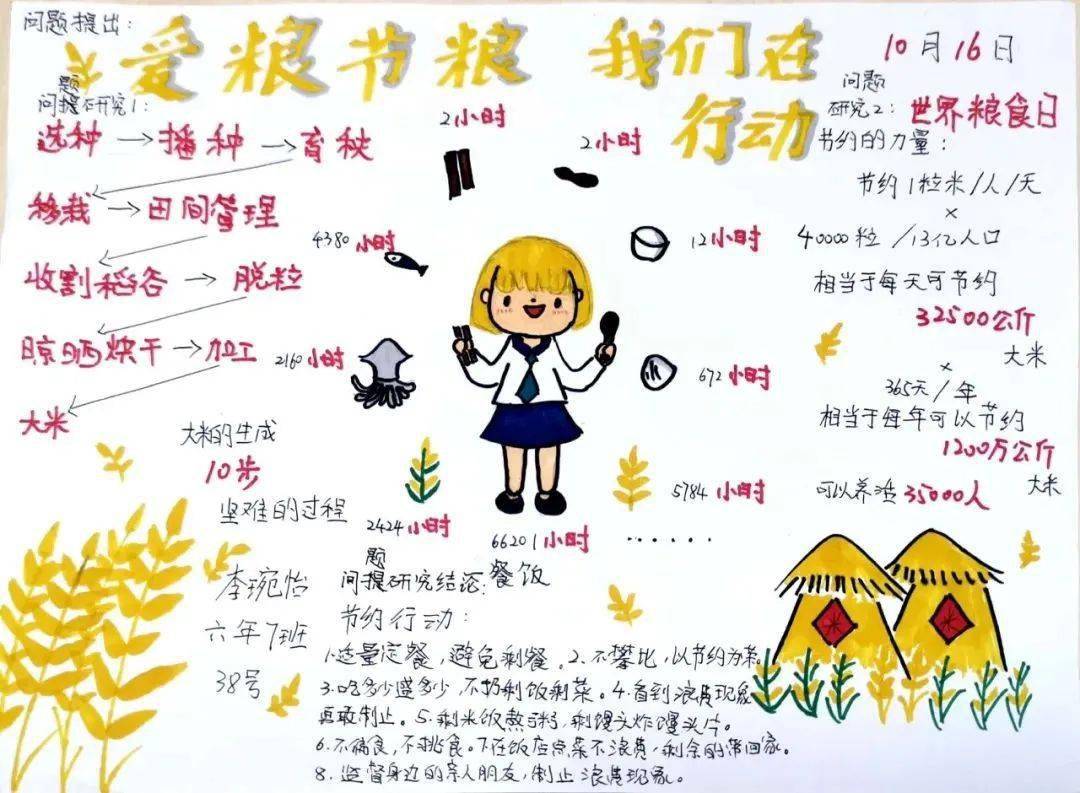 问题提出：
爱粮节粮 我们在
行动
10月16日
世界粮食日
题
问提研究1：
选种→播种→育秧
移栽→田间管理
收割稻谷→脱粒
晾晒烘干→加工
大米
大米的生成
10步
坚难的过程
2小时
2小时
4380小时
12小时
2160小时
672小时
2424小时
66201小时
5784小时
......
餐饭
问题
研究2：
节约的力量：
节约1粒米/人/天
×
40000粒/13亿人口
相当于每天可节约
32500公斤
大米
×
365天/年
相当于每年可以节约
1200万公斤
大米
可以养活35000人
李琬怡
六年7班
38号
题
问提研究结论：
节约行动：
1.适量定餐，避免剩餐。2、不攀比，以节约为荣。
3.吃多少盛多少，不扔剩饭剩菜。4.看到浪费现象
勇敢制止。5.剩米饭熬粥，剩馒头炸馒头片。
6.不偏食，不挑食。7.在饭店点菜不浪费，剩余的带回家。
8.监督身边的亲人朋友，制止浪费现象。